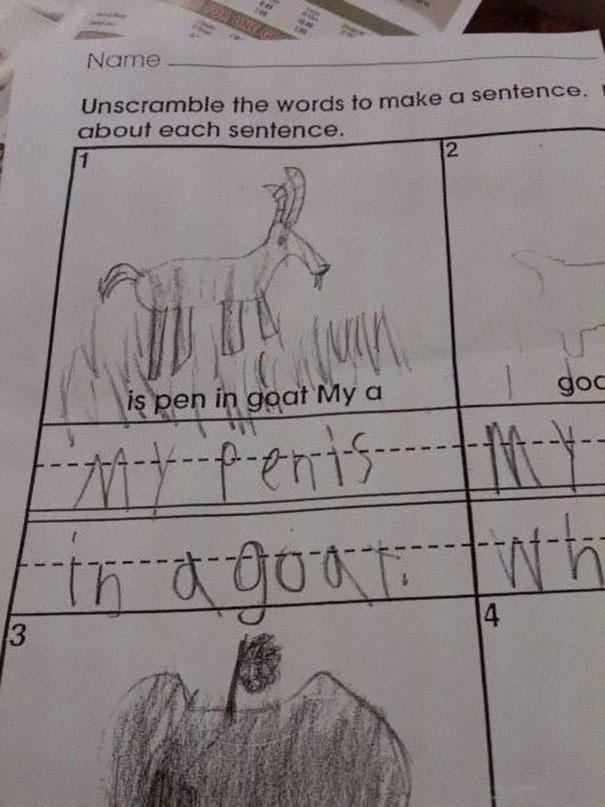 Name
Unscramble the words to make a sentence.
about each sentence.
1
2
is pen in goat My a
My penis
My
in a goat.
wh
3
4